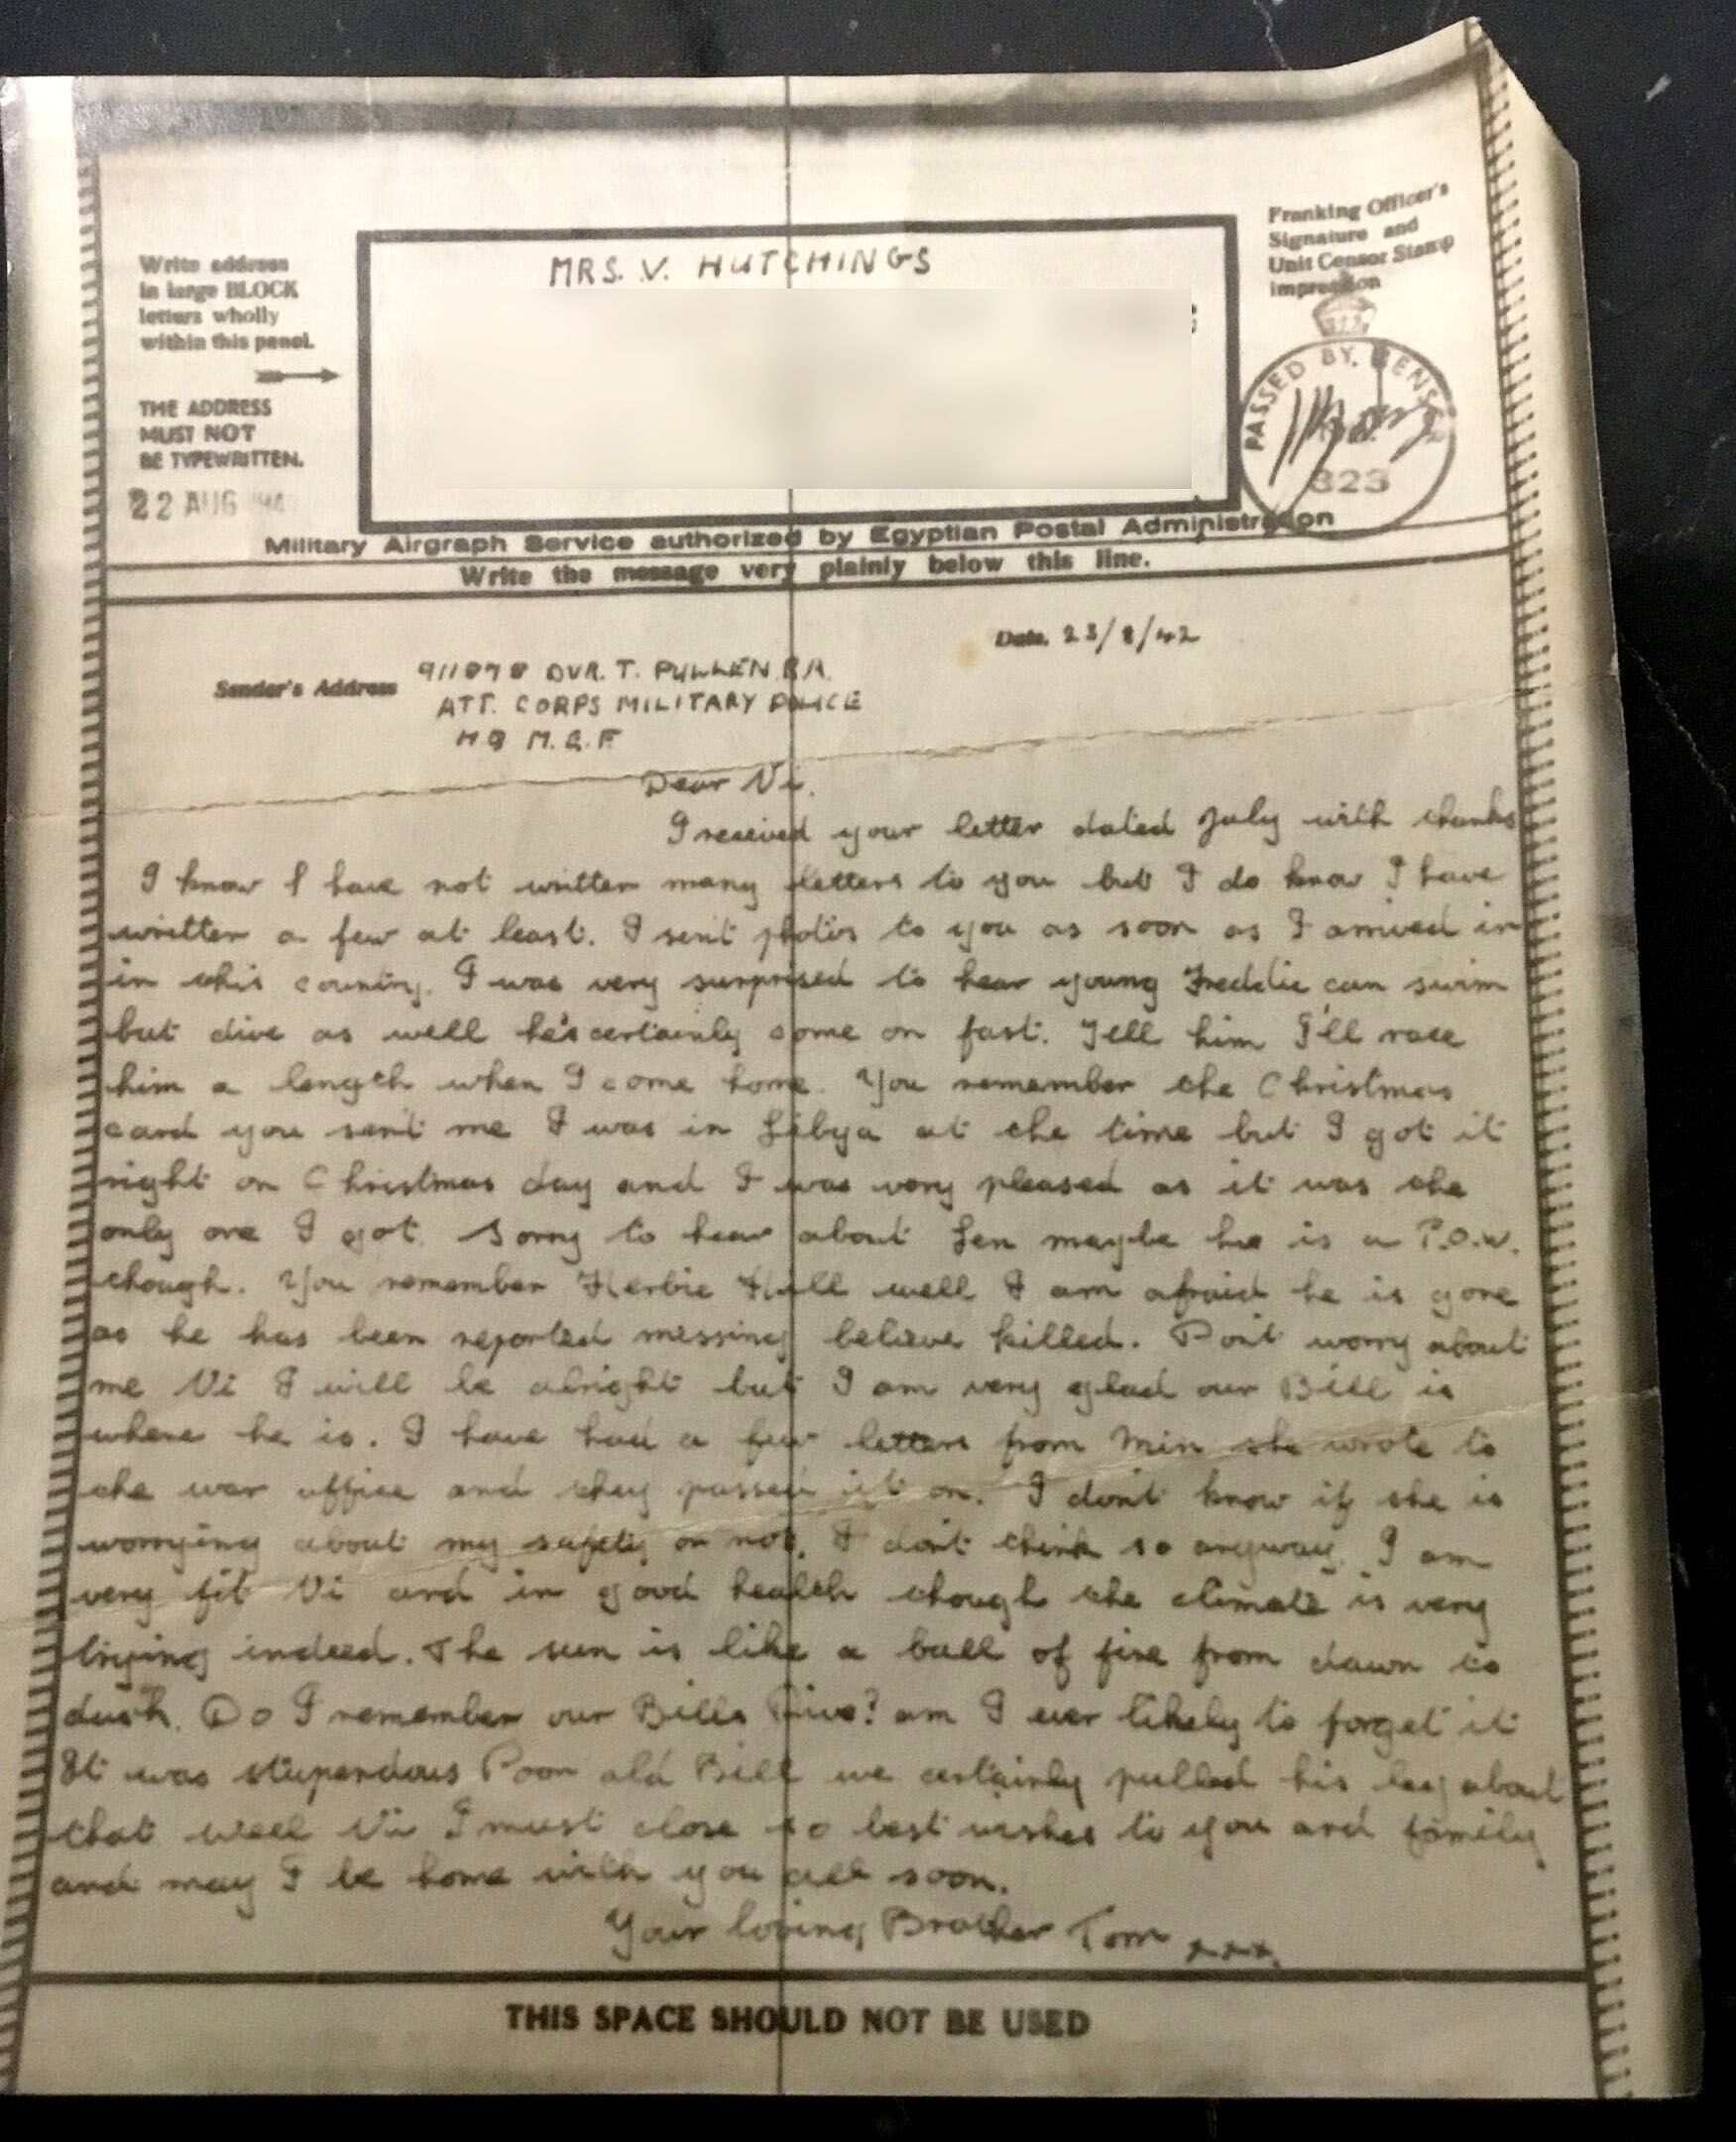 Write address
in large BLOCK
letters wholly
within this panel.
THE ADDRESS
MUST NOT
BE TYPEWRITTEN.
22 AUG
MRS. V. HUTCHINGS
Franking Officer's
Signature and
Unit Censor Stamp
impression
PASSED BY CENSOR
323
Military Airgraph Service authorized by Egyptian Postal Administration
Write the message very plainly below this line.
Date. 23/8/42
Sender's Address 911878 DVR. T. PULLEN. R.A.
ATT. CORPS MILITARY POLICE
HQ M.E.F
Dear Vi.
I received your letter dated July with thanks
I know I have not written many letters to you but I do know I have
written a few at least. I sent photos to you as soon as I arrived in
in this country. I was very surprised to hear young Freddie can swim
but dive as well he's certainly come on fast. Tell him I'll race
him a length when I come home. You remember the Christmas
card you sent me I was in Libya at the time but I got it
right on Christmas day and I was very pleased as it was the
only one I got. Sorry to hear about Len maybe he is a P.O.W.
though. You remember Herbie Hall well I am afraid he is gone
as he has been reported missing believe killed. Dont worry about
me Vi I will be alright but I am very glad our Bill is
where he is. I have had a few letters from Min she wrote to
the war office and they passed it on. I dont know if she is
worrying about my safety or not, I dont think so anyway. I am
very fit Vi and in good health though the climate is very
trying indeed. The sun is like a ball of fire from dawn to
dusk. Do I remember our Bills Dive? am I ever likely to forget it
It was stupendous Poor old Bill we certainly pulled his leg about
that well Vi I must close so best wishes to you and family
and may I be home with you all soon.
Your loving Brother Tom xxx.
THIS SPACE SHOULD NOT BE USED